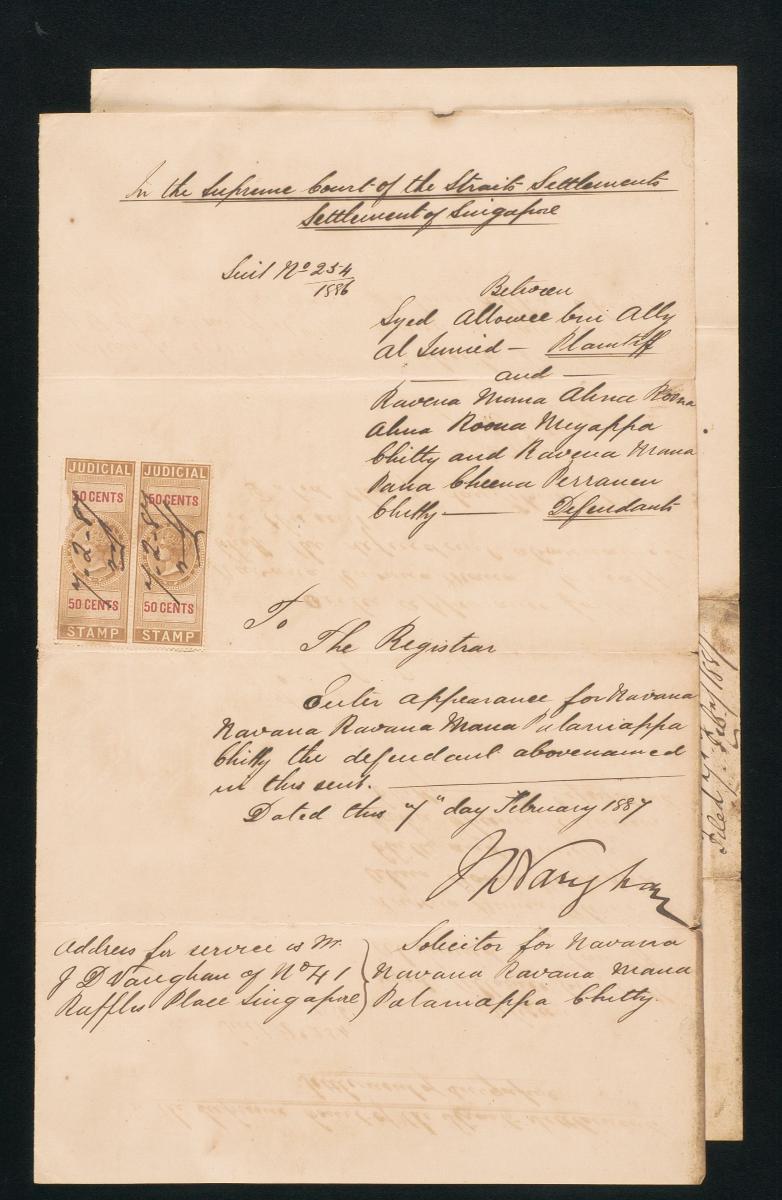 In the Supreme Court of the Straits Settlements
Settlement of Singapore
Suit No 254
1886
Between
Syed Allowee bin Ally
Al Junied — Plaintiff
— and —
Ravena Mana Ahna Roona
Ahna Roona Meyappa
Chitty and Ravena Mana
Pana Cheena Perranen
Chitty — Defendants
JUDICIAL
50 CENTS
50 CENTS
STAMP
JUDICIAL
50 CENTS
50 CENTS
STAMP
7-2-87
7-2-87
To
The Registrar
Enter appearance for Navana
Navana Ravana Mana Palaniappa
Chitty the defendant abovenamed
in this suit.
Dated this "7" day February 1887
J D Vaughan
Address for service is Mr.
J D Vaughan of No 41
Raffles Place Singapore
Solicitor for Navana
Navana Ravana Mana
Palaniappa Chitty.
Filed 7 Feby 1887